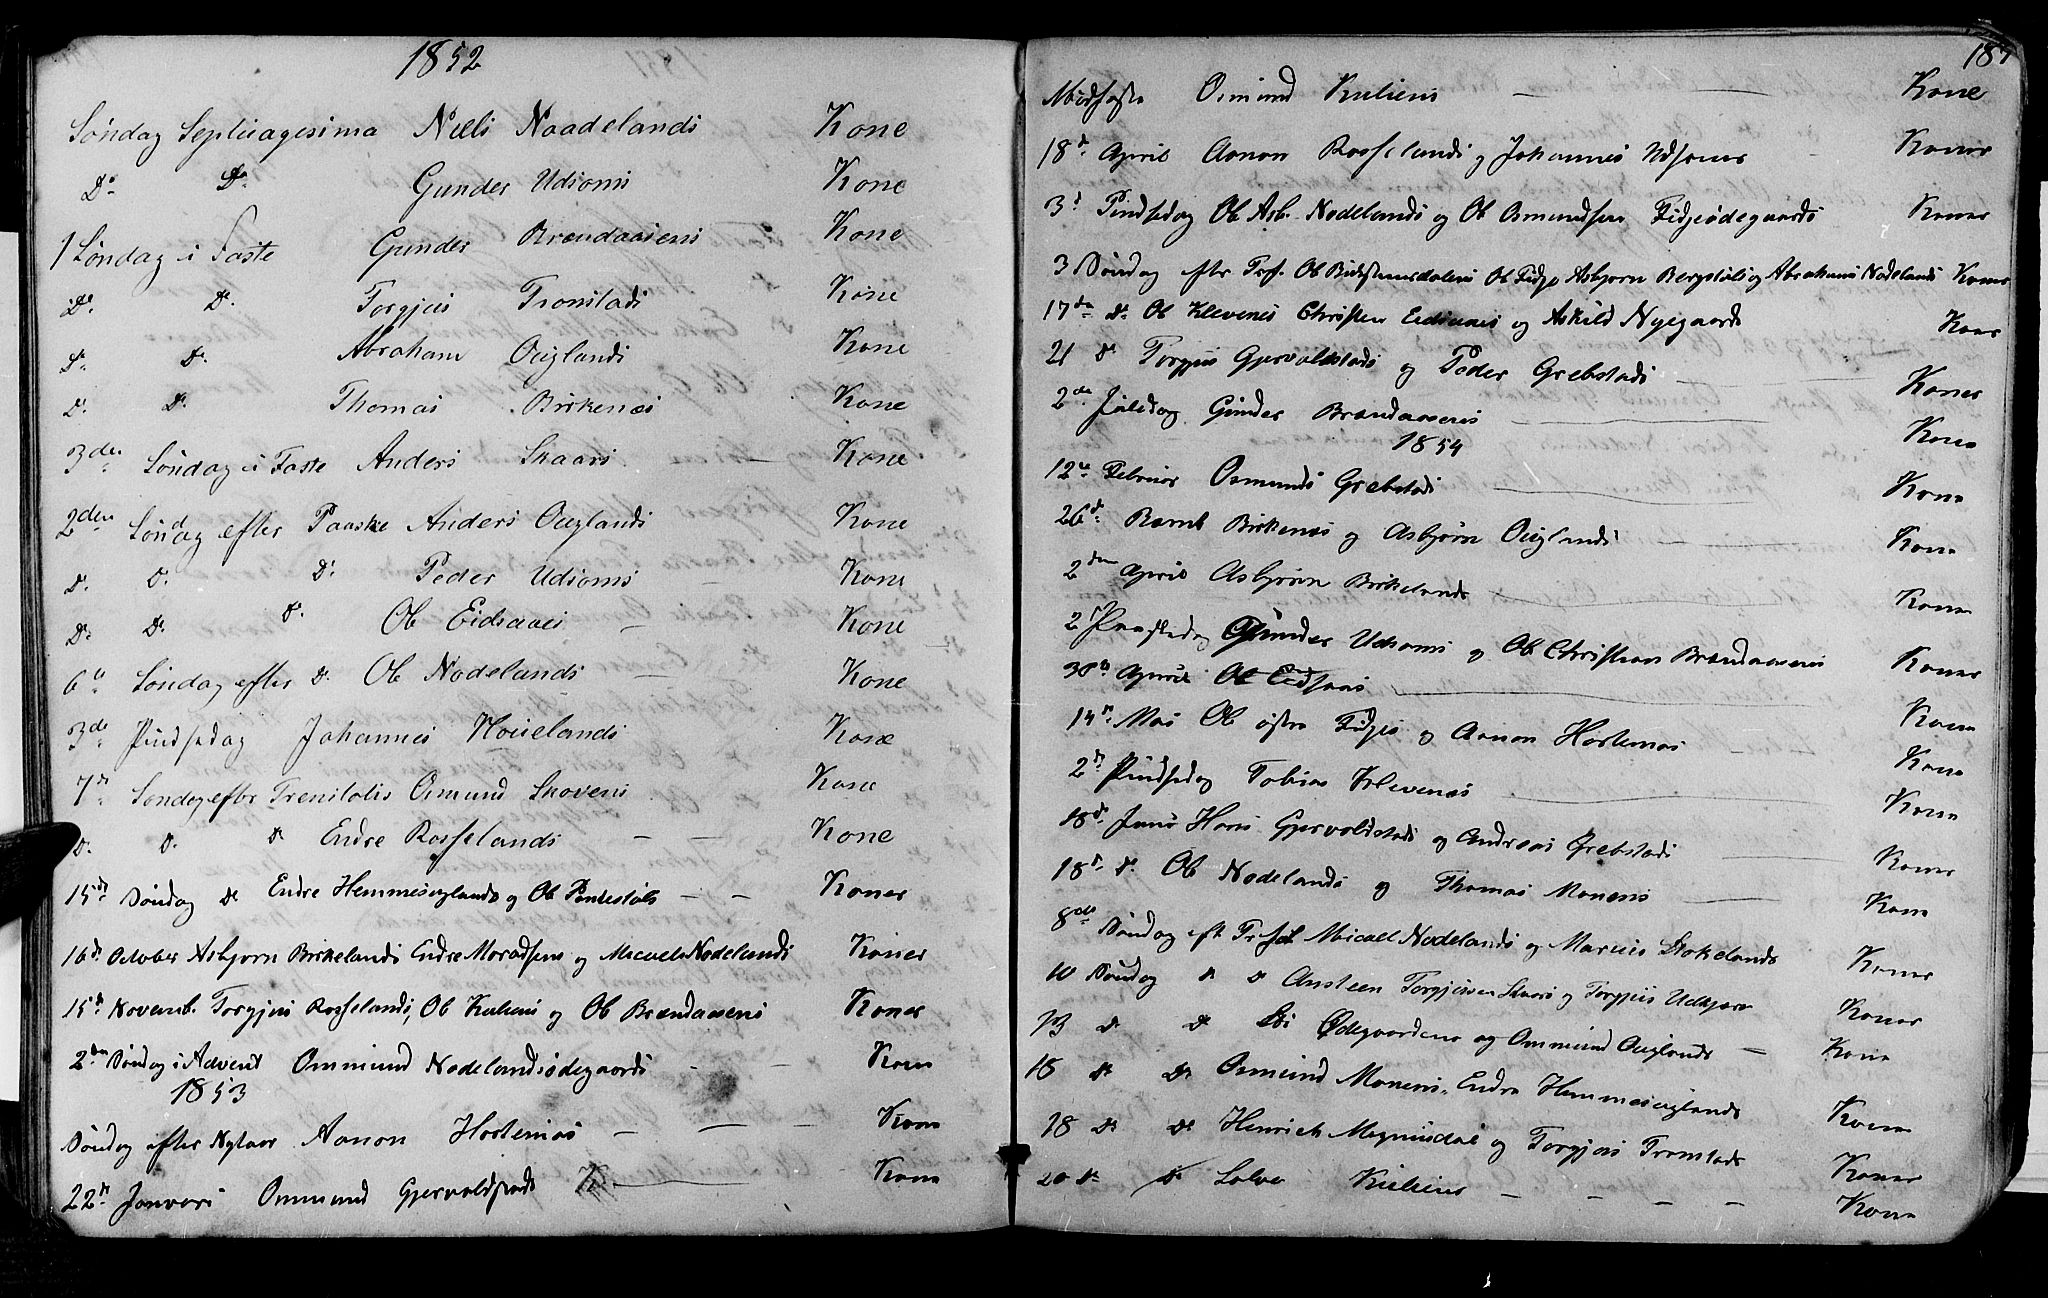 1852
Søndag Septuagesima Niels Naadelands Kone
D° D° Gunder Udsoms Kone
1 Søndag i Faste Gunder Brændaasens Kone
D° D° Torgjus Tronstads Kone
D° D° Abraham Ouglands Kone
D° D° Thomas Birkenæs Kone
3den Søndag i Faste Anders Skaars Kone
2den Søndag efter Paaske Anders Ouglands Kone
D° D° D° Peder Udsoms Kone
D° D° D° Ole Eidsaaes Kone
6te Søndag efter D° Ole Nodelands Kone
3de Pindsedag Johannes Houelands Kone
7de Søndag efter Trenitatis Osmund Skovens Kone
D° D° D° Endre Rosselands Kone
15de Søndag D° Endre Hemmesouglands og Ole Koner
16de October Asbjorn Birkelands Endre og Micael Nodelands Koner
15de Novemb. Torgjus Rosselands, Ole Kuliens og Ole Brændaasens Koner
2den Søndag i Advent Ommund Nodelandsødegaards Kone
1853
Søndag efter Nytaar Aanon Hortemos Kone
22de Januari Ommund Gjervoldstads Kone
187
Midfaste Osmund Kuliens Kone
18de April Aanon Rosselands og Johannes Udsoms Koner
3de Pindsedag Ole Asb. Nodelands og Ole Osmundsen Fidjeødegaards Koner
3 Søndag efter Tref. Ole Ole Fidje Asbjorn og Abrahams Nodelands Koner
17de D° Ole Klevenes Christen Eidsaaes og Askild Nygaards Koner
21 D° Torgjus Gjervoldstads og Peder Grebstads Koner
2den Juledag Gunder Brændaasens Kone
1854
12te Februar Osmunds Grebstads Kone
26de Bernt Birkenæs og Asbjørn Ouglands Kone
2den April Asbjørn Birkelands Kone
2 Paaskedag Gunder Udsoms og Ole Christian Brændaasens Koner
30te April Ole Eidsaas Kone
14de Mai Ole østre Fidjes og Aanon Hortemos Kone
2de Pindsedag Tobias Klevenæs Kone
18de Juni Hans Gjervoldstads og Andreas Grebstads Koner
18de D° Ole Nodelands og Thomas Monens Kone
8de Søndag eft Tref Micael Nodelands og Marcus Stokelands Koner
10 Søndag D° D° Ansteen Torgjussen Skaars og Torgjus Udkjær Koner
13 D° D° Ødegaardens og Ommund Ouglands Kone
18 D° D° Osmund Monens, Endre Hemmesouglands Koner
18 D° D° Henrich og Torgjus Tronstads Koner
20 D° D° Salve Kuliens Kone